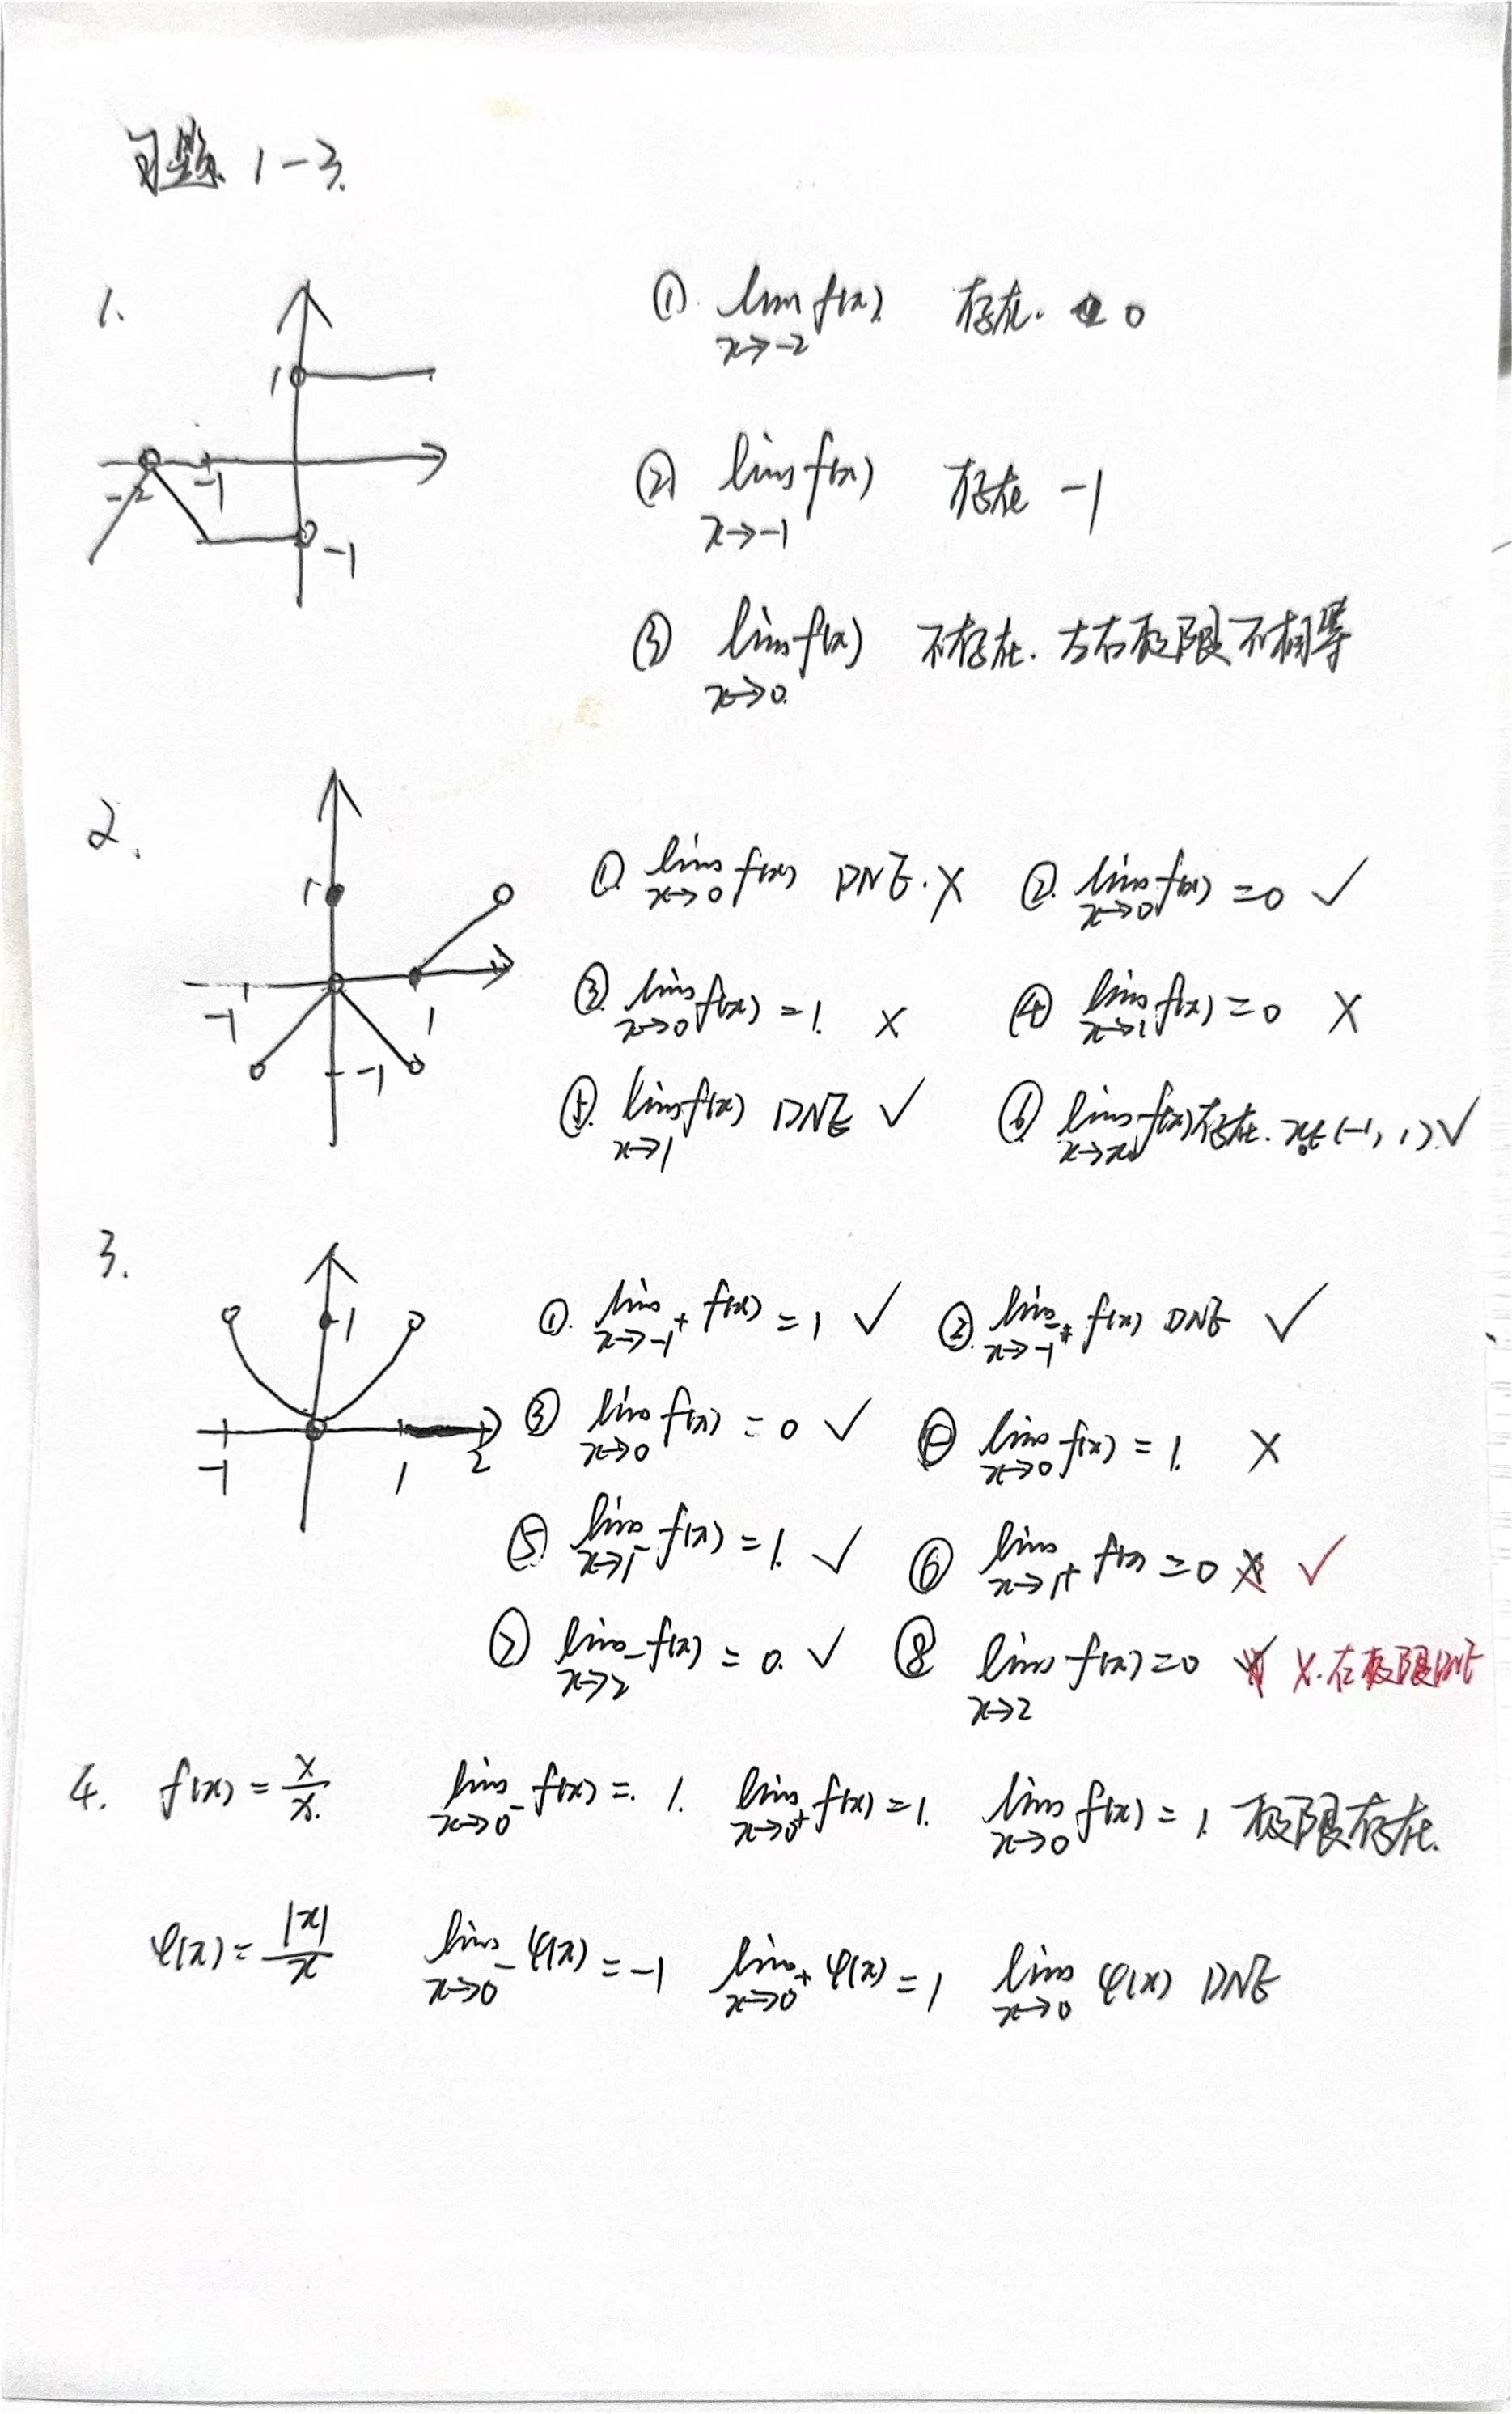 习题 1-3.
1. ① lim x→-2 f(x) 存在. 0
1 -2 -1 -1
② lim x→-1 f(x) 存在 -1
③ lim x→0. f(x) 不存在. 左右极限不相等
2. ① lim x→0 f(x) DNE. × ② lim x→0 f(x) =0 ✓
1 -1 1 -1
③ lim x→0 f(x) =1. × ④ lim x→1 f(x) =0 ×
⑤ lim x→1 f(x) DNE ✓ ⑥ lim x→x₀ f(x)存在. x₀∈(-1, 1) ✓
3. ① lim x→-1⁺ f(x) =1 ✓ ② lim x→-1⁻ f(x) DNE ✓
1 -1 1 2
③ lim x→0 f(x) =0 ✓ ④ lim x→0 f(x) =1. ×
⑤ lim x→1⁻ f(x) =1. ✓ ⑥ lim x→1⁺ f(x) =0 × ✓
⑦ lim x→2⁻ f(x) =0. ✓ ⑧ lim x→2 f(x) =0 ×.右极限DNE
4. f(x) = x/x. lim x→0⁻ f(x) =. 1. lim x→0⁺ f(x) =1. lim x→0 f(x) =1. 极限存在.
φ(x) = |x|/x lim x→0⁻ φ(x) =-1 lim x→0⁺ φ(x) =1 lim x→0 φ(x) DNE